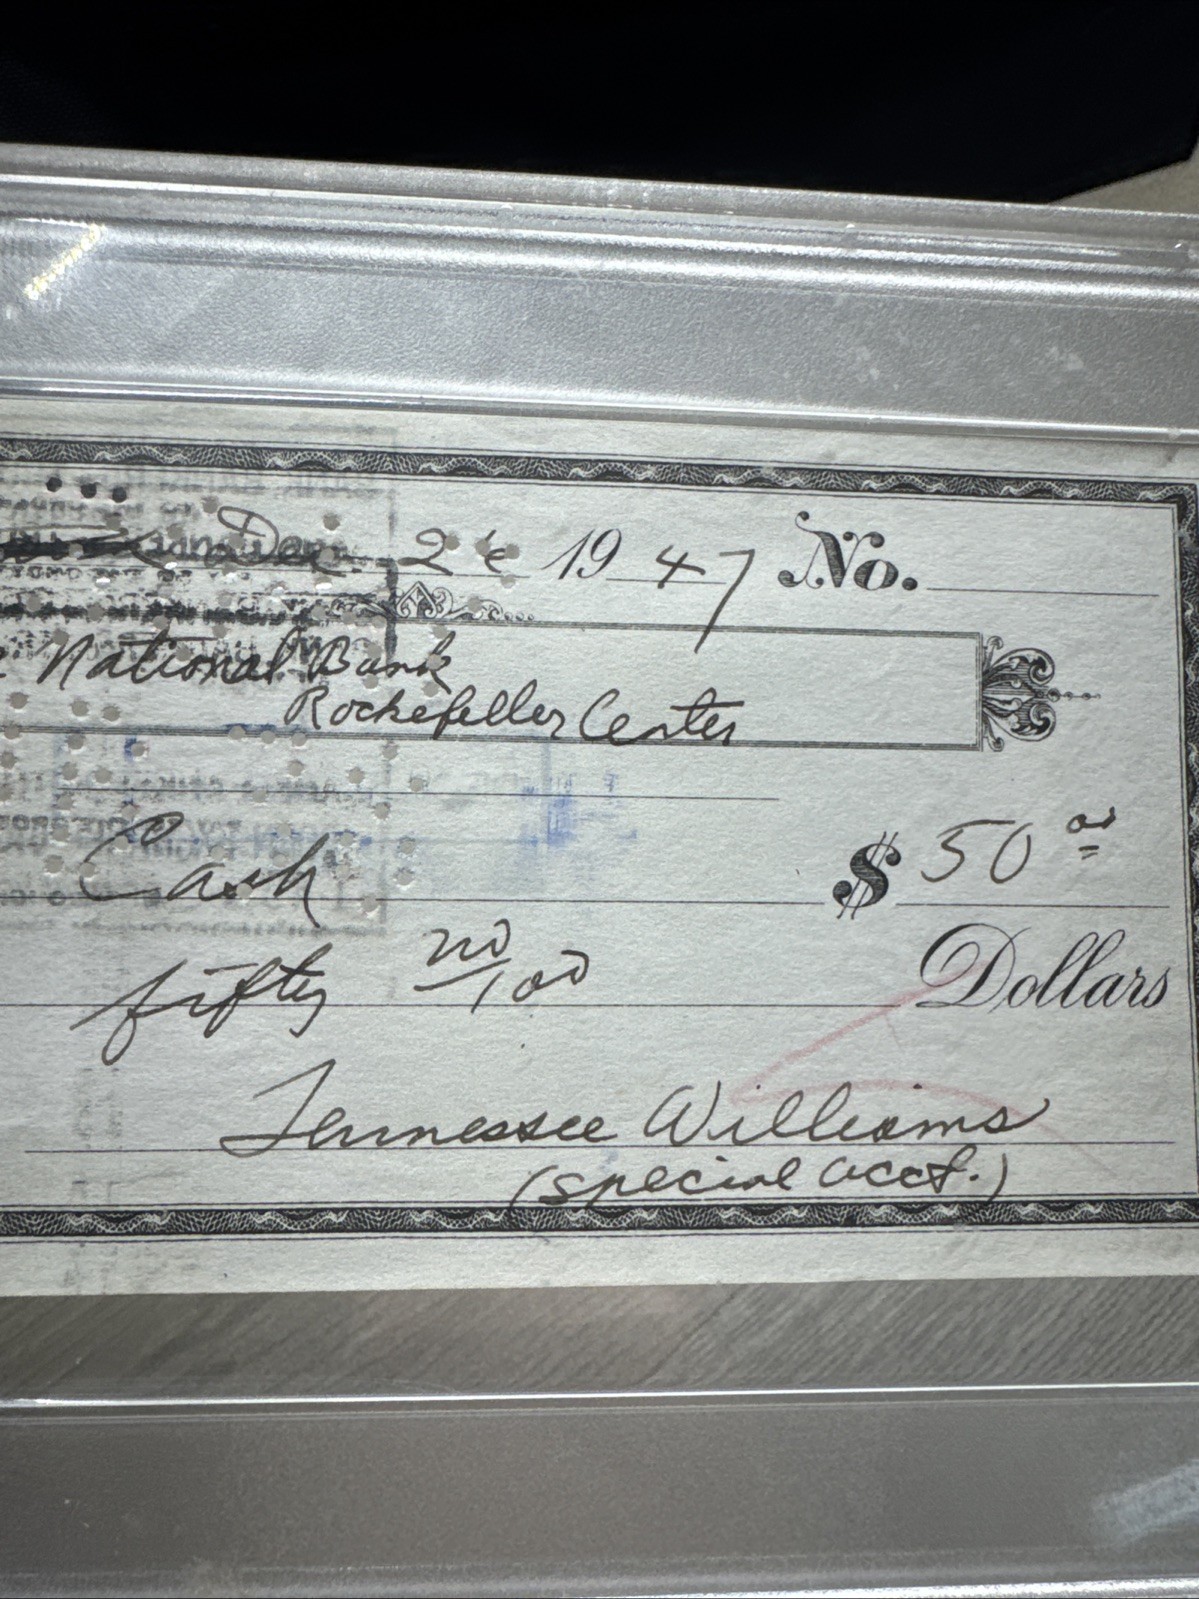 Dec. 2 19 47 No.
National Bank
Rockefeller Center
Cash $ 50 00
fifty no/100 Dollars
Tennessee Williams
(special acct.)